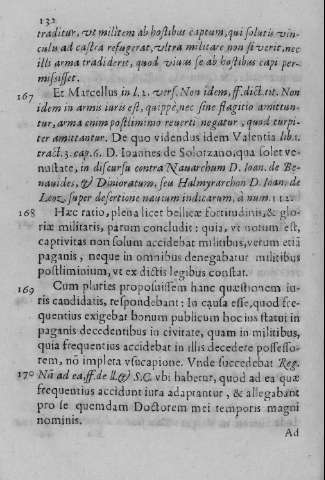 132
traditur, vt militem ab hostibus captum, qui solutis vin-
culis ad castra refugerat, vltra militare non siverit, nec
illi arma tradiderit, quod viuus se ab hostibus capi per-
mississet.
167 Et Marcellus in l.2. vers. Non idem, ff. dict. tit. Non
idem in armis iuris est, quippè, nec sine flagitio amittun-
tur, arma enim postliminio reuerti negatur, quod turpi-
ter amittantur. De quo videndus idem Valentia lib.1.
tract.3. cap.6. D. Ioannes de Solorzano, qua solet ve-
nustate, in discursu contra Nauarchum D. Ioan. de Be-
nauides, & Dinioratum, seu Halmyrarchon D. Ioan. de
Leoz, super desertione nauium indicarum, à num. 112.
168 Hæc ratio, plena licet bellicæ fortitudinis, & glo-
riæ militaris, parum concludit: quia, vt notum est,
captivitas non solum accidebat militibus, verum etiã
paganis, neque in omnibus denegabatur militibus
postliminium, vt ex dictis legibus constat.
169 Cum pluries proposuissem hanc quæstionem iu-
ris candidatis, respondebant; In causa esse, quod fre-
quentius exigebat bonum publicum hoc ius statui in
paganis decedentibus in civitate, quam in militibus,
quia frequentius accidebat in illis decedere possesso-
rem, nõ impleta vsucapione. Vnde succedebat Reg.
170 Nã ad ea, ff. de ll. & S.C. vbi habetur, quod ad ea quæ
frequentius accidunt iura adaptantur, & allegabant
pro se quemdam Doctorem mei temporis magni
nominis.
Ad